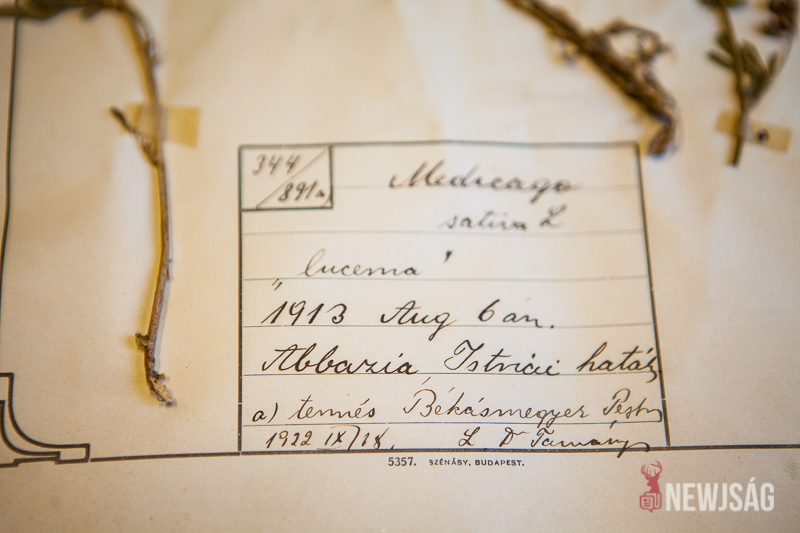 344
891a
Medicago
sativa L
„lucerna"
1913 Aug 6án.
Abbazia Istriai határ
a) termés Békásmegyer Pestm
1922 IX/18. L. Dr
5357. SZÉNÁSY, BUDAPEST.
NEWJSÁG